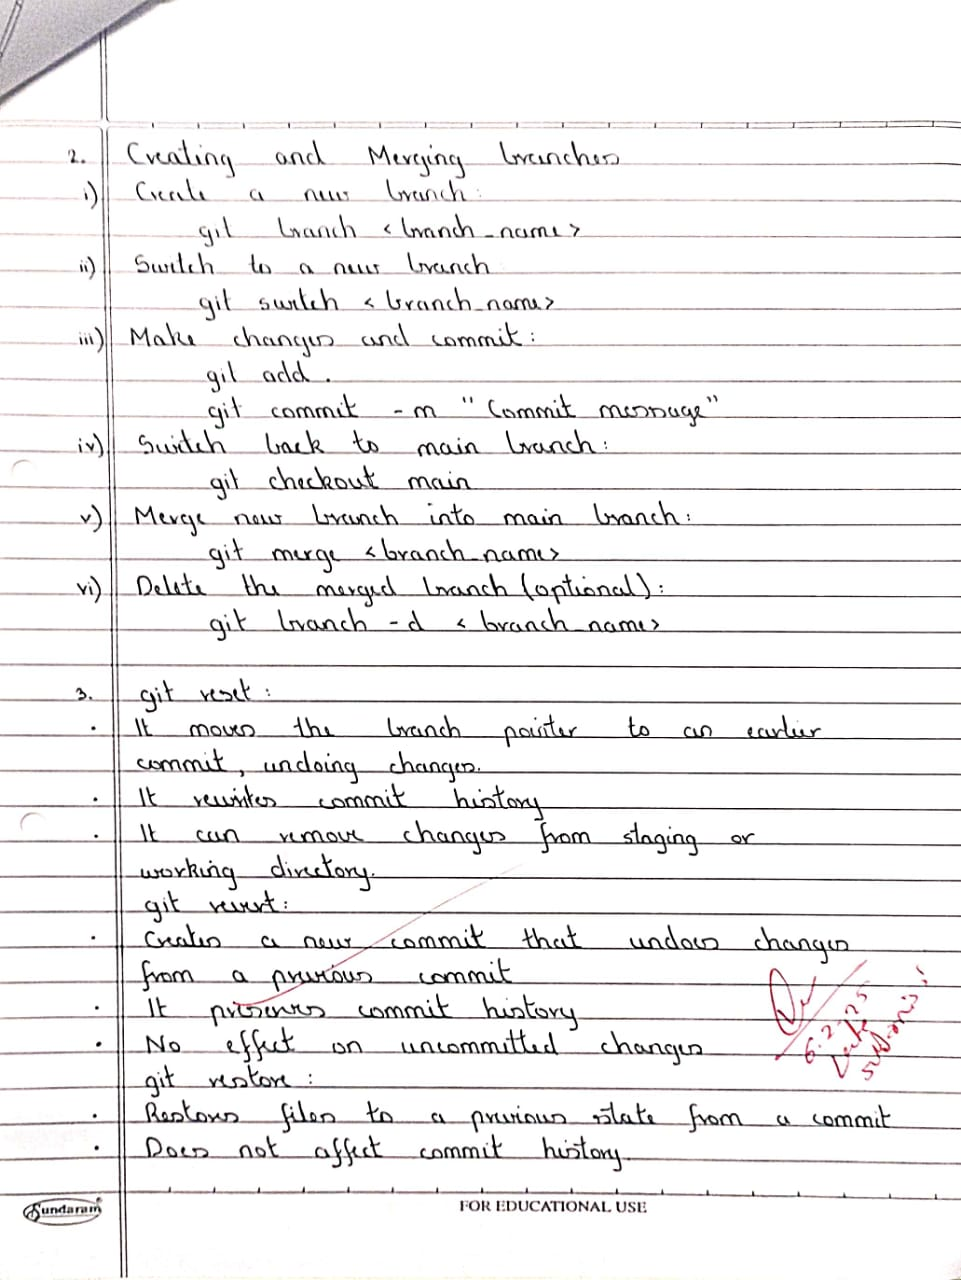 2. Creating and Merging branches
i) Create a new branch:
git branch <branch_name>
ii) Switch to a new branch
git switch <branch_name>
iii) Make changes and commit:
git add .
git commit -m "Commit message"
iv) Switch back to main branch:
git checkout main
v) Merge new branch into main branch:
git merge <branch_name>
vi) Delete the merged branch (optional):
git branch -d <branch_name>
3. git reset:
· It moves the branch pointer to an earlier
commit, undoing changes.
· It rewrites commit history
· It can remove changes from staging or
working directory.
git revert:
· Creates a new commit that undoes changes
from a previous commit
· It preserves commit history
· No effect on uncommitted changes
git restore:
· Restores files to a previous state from a commit
· Does not affect commit history.
6.2.25
Late
Sundaram
FOR EDUCATIONAL USE